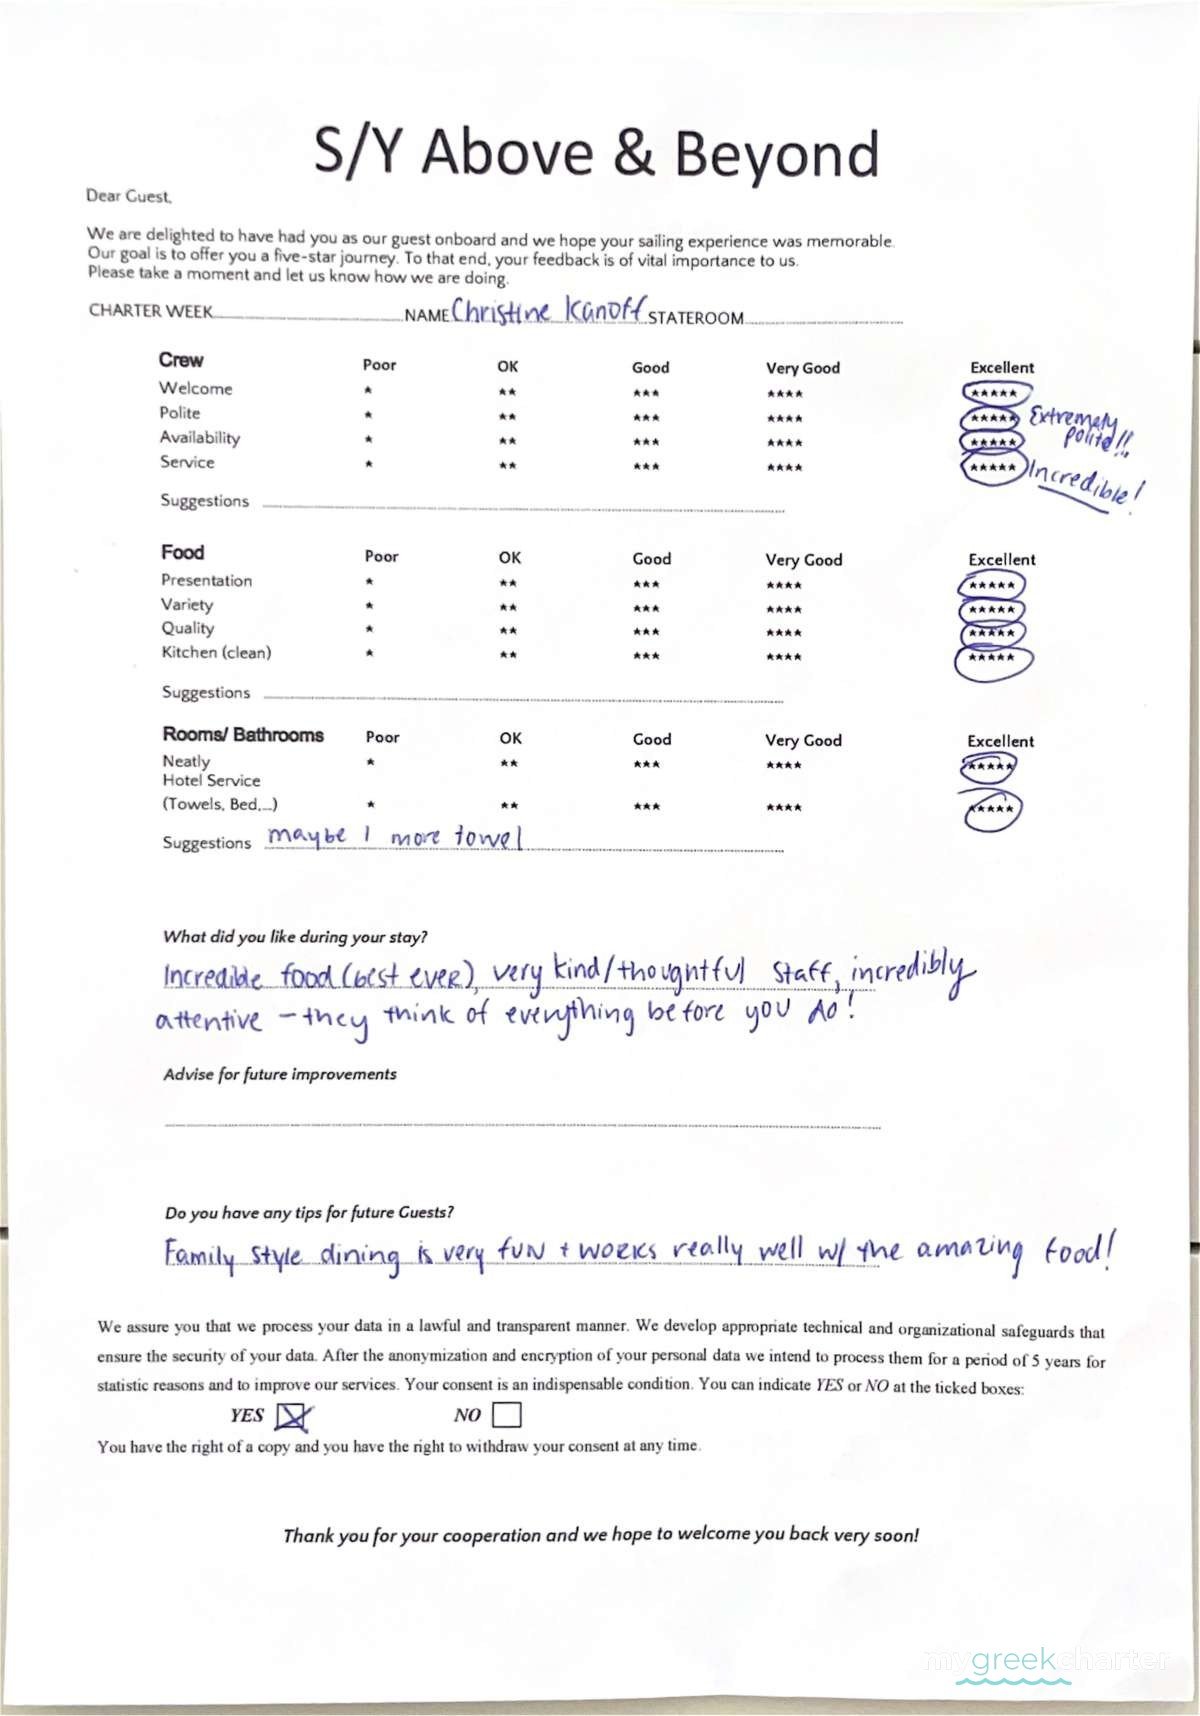 S/Y Above & Beyond
Dear Guest,
We are delighted to have had you as our guest onboard and we hope your sailing experience was memorable.
Our goal is to offer you a five-star journey. To that end, your feedback is of vital importance to us.
Please take a moment and let us know how we are doing.
CHARTER WEEK NAME Christine Kanoff STATEROOM
Crew Poor OK Good Very Good Excellent
Welcome * ** *** **** *****
Polite * ** *** **** ***** Extremely polite!!
Availability * ** *** **** *****
Service * ** *** **** ***** Incredible!
Suggestions
Food Poor OK Good Very Good Excellent
Presentation * ** *** **** *****
Variety * ** *** **** *****
Quality * ** *** **** *****
Kitchen (clean) * ** *** **** *****
Suggestions
Rooms/ Bathrooms Poor OK Good Very Good Excellent
Neatly * ** *** **** *****
Hotel Service
(Towels, Bed,...) * ** *** **** *****
Suggestions maybe 1 more towel
What did you like during your stay?
Incredible food (best ever), very kind/thoughtful staff, incredibly
attentive - they think of everything before you do!
Advise for future improvements
Do you have any tips for future Guests?
Family style dining is very fun + works really well w/ the amazing food!
We assure you that we process your data in a lawful and transparent manner. We develop appropriate technical and organizational safeguards that
ensure the security of your data. After the anonymization and encryption of your personal data we intend to process them for a period of 5 years for
statistic reasons and to improve our services. Your consent is an indispensable condition. You can indicate YES or NO at the ticked boxes:
YES NO
You have the right of a copy and you have the right to withdraw your consent at any time.
Thank you for your cooperation and we hope to welcome you back very soon!
mygreekcharter